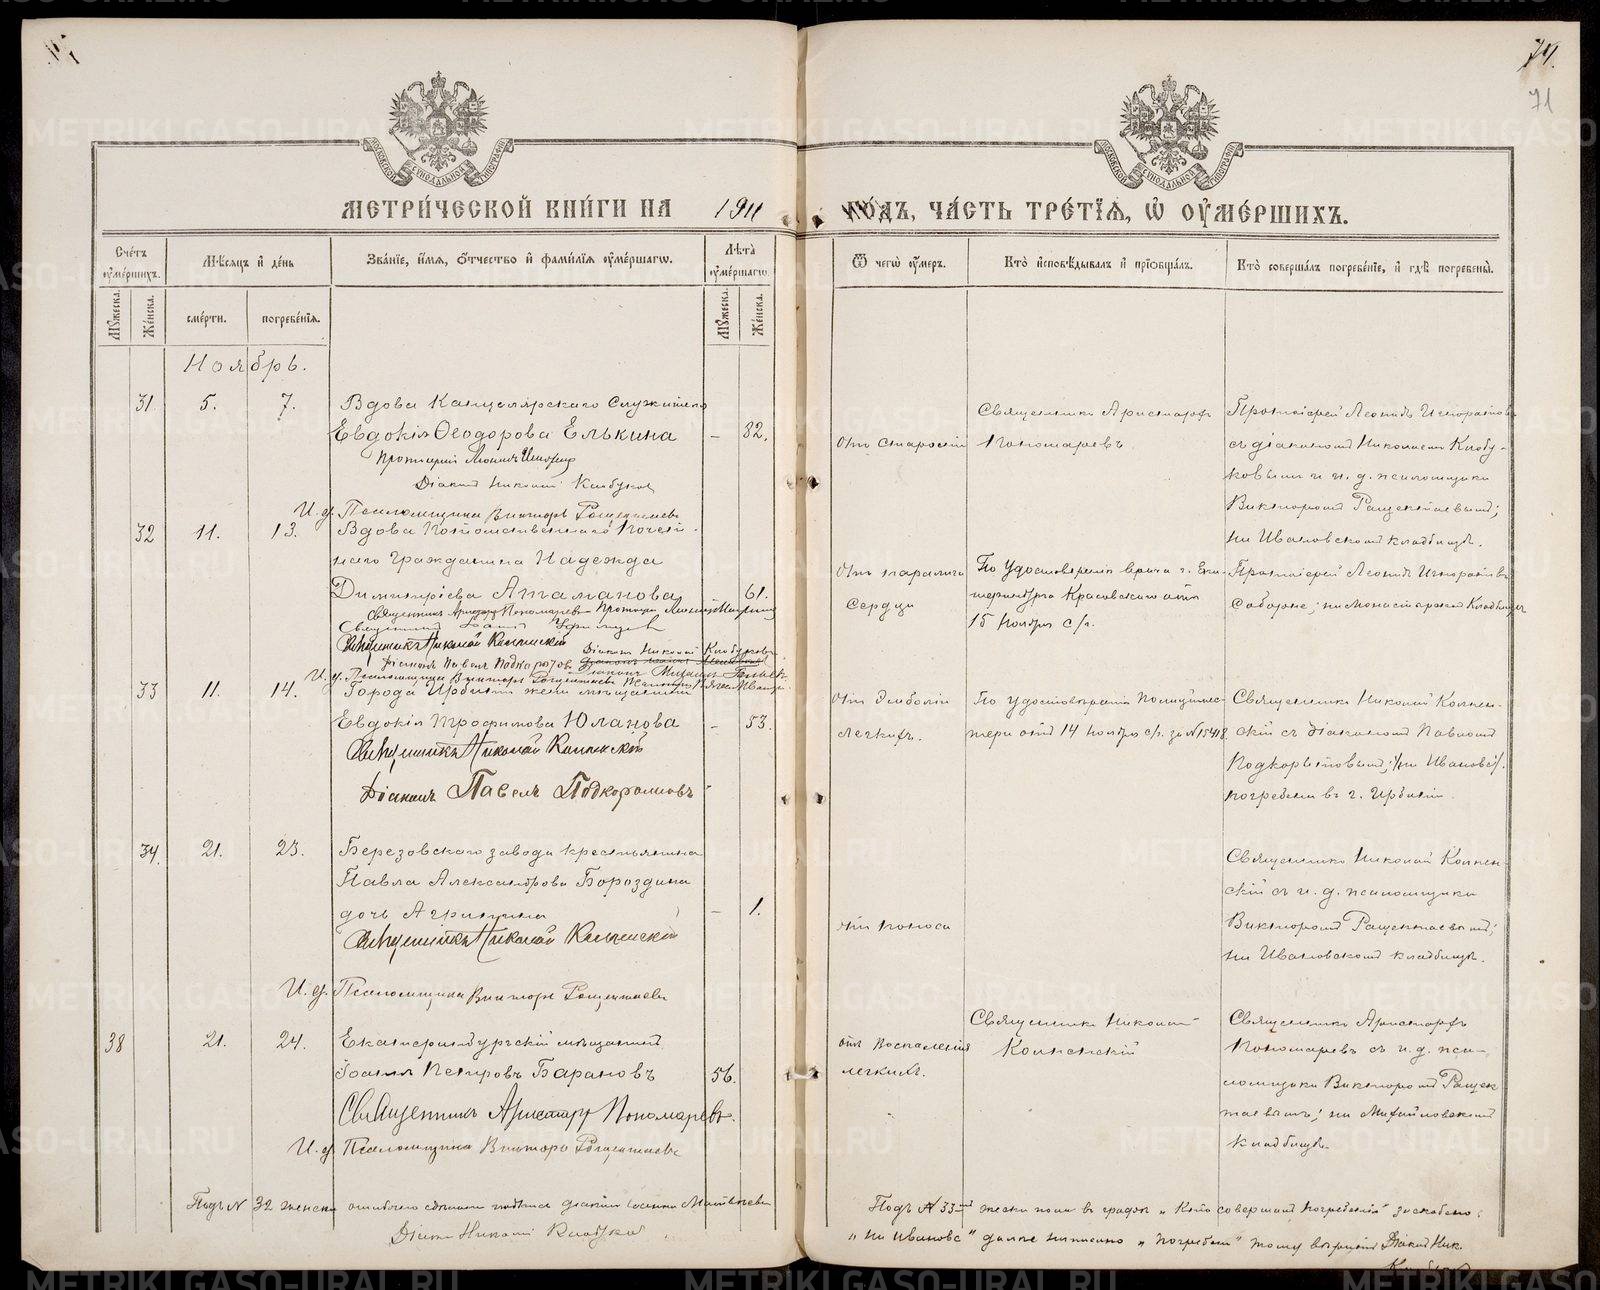 74.
71
МЕТРИ́ЧЕСКОЙ КНИ́ГИ НА 1911 ГОДЪ, ЧА́СТЬ ТРЕ́ТІѦ, Ѡ҆ ОУ҆МЕ́РШИХЪ.
Сче́тъ оу҆ме́ршихъ.
Мꙋ́жеска.
Же́нска.
Мѣ́сяцъ и҆ де́нь
сме́рти.
погребе́нїѧ.
Зва́нїе, и҆́мѧ, ѻ҆́тчество и҆ фами́лїѧ оу҆ме́ршагѡ.
Лѣ́та оу҆ме́ршагѡ.
Мꙋ́жеска.
Же́нска.
Ѿ чегѡ̀ оу҆́меръ.
Кто̀ и҆сповѣ́дывалъ и҆ прїѡбща́лъ.
Кто̀ соверша́лъ погребе́нїе, и҆ гдѣ̀ погребены̀.
Ноябрь.
31 5. 7. Вдова Канцелярскаго Служителя
Евдокія Ѳеодорова Елькина – 82.
Протоіерей Леонидъ Игноратовъ
Діаконъ Николай Клобуковъ
И. д. Псаломщика Викторъ Ращектаевъ
Отъ старости
Священникъ Аристархъ
Пономаревъ
Протоіерей Леонидъ Игноратовъ
съ діакономъ Николаемъ Клобу-
ковымъ и и. д. псаломщика
Викторомъ Ращектаевымъ;
на Ивановскомъ кладбищѣ.
32 11. 13. Вдова Потомственнаго Почет-
наго Гражданина Надежда
Димитріева Атаманова 61.
Священникъ Аристархъ Пономаревъ Протоіерей Леонидъ Игноратовъ
Священникъ
Священникъ Николай Колпенскій
Діаконъ Николай Клобуковъ
Діаконъ Павелъ Подкорытовъ
И. д. Псаломщика Викторъ Ращектаевъ
Отъ паралича
сердца
По удостовѣренію врача г. Ека-
теринбурга Красовскаго отъ
15 Ноября с/г.
Протоіерей Леонидъ Игноратовъ
Соборне; на Монастырскомъ Кладбищѣ
33 11. 14. Города Ирбити жена мѣщанина
Евдокія Трофимова Юланова – 53.
Священникъ Николай Колпенскій
Діаконъ Павелъ Подкорытовъ
Отъ Эмболіи
легкихъ.
По удостовѣренію Полицмей-
стера отъ 14 Ноября с/г. за № 15418
Священникъ Николай Колпен-
скій съ діакономъ Павломъ
Подкорытовымъ; /на Ивановс/.
погребена въ г. Ирбити.
34. 21. 23. Березовскаго завода крестьянина
Павла Александрова Бороздина
дочь Агрипина – 1.
Священникъ Николай Колпенскій
И. д. Псаломщика Викторъ Ращектаевъ
отъ поноса
Священникъ Николай Колпен-
скій съ и. д. псаломщика
Викторомъ Ращектаевымъ;
на Ивановскомъ кладбищѣ.
38 21. 24. Екатеринбургскій мѣщанинъ
Іоаннъ Петровъ Барановъ 56.
Священникъ Аристархъ Пономаревъ.
И. д. Псаломщика Викторъ Ращектаевъ
отъ Воспаленія
легкихъ.
Священникъ Николай
Колпенскій
Священникъ Аристархъ
Пономаревъ съ и. д. пса-
ломщика Викторомъ Ращек-
таевымъ; на Михайловскомъ
кладбищѣ.
Подъ № 32 женск. ошибочно сдѣлана подпись діакона
Діаконъ Николай Клобуковъ
Подъ № 33-мъ женска пола въ графѣ „Кто совершалъ погребеніе" заскоблено:
„на Ивановс" далѣе написано „погребена" тому вѣрить Діаконъ Ник.
Клобуковъ
METRIKI.GASO-URAL.RU